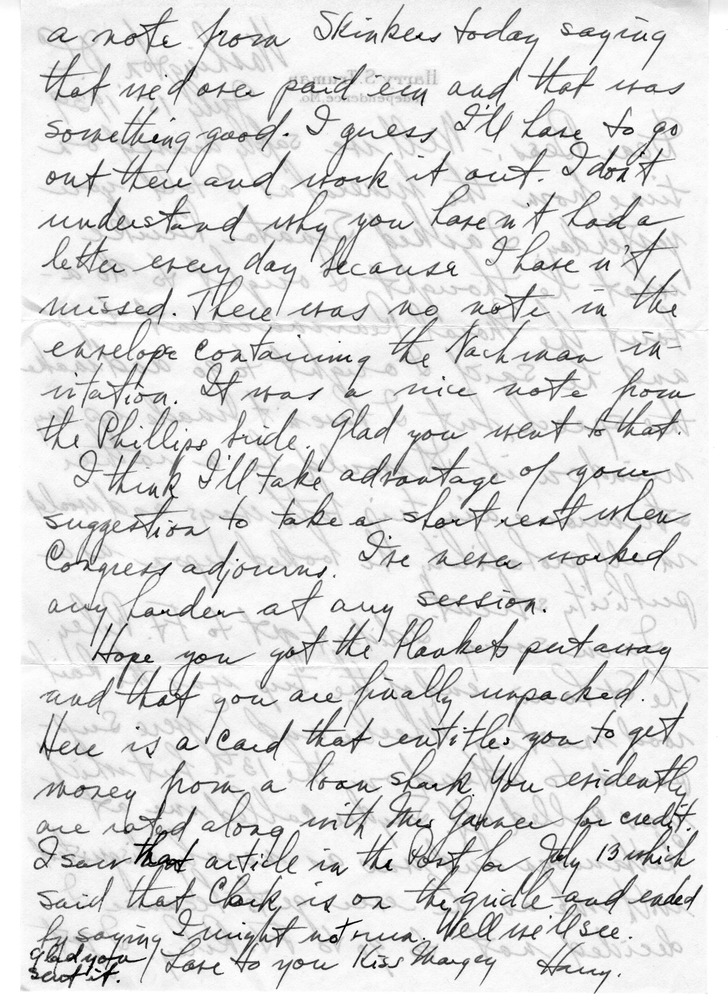 a note from Skinkers today saying
that we'd over paid em and that was
something good. I guess I'll have to go
out there and work it out. I don't
understand why you haven't had a
letter every day because I haven't
missed. There was no note in the
envelope containing the Nachman in-
vitation. It was a nice note from
the Phillips bride. Glad you went to that.
I think I'll take advantage of your
suggestion to take a short rest when
Congress adjourns. I've never worked
any harder at any session.
Hope you got the blankets put away
and that you are finally unpacked.
Here is a card that entitles you to get
money from a loan shark. You evidently
are rated along with Mrs Garner for credit.
I saw that article in the Post for July 13 which
said that Clark is on the gridle and ended
by saying I might not run. Well we'll see.
Glad you
sent it.
Love to you Kiss Margey Harry.
Harry S. Truman
Independence, Mo.